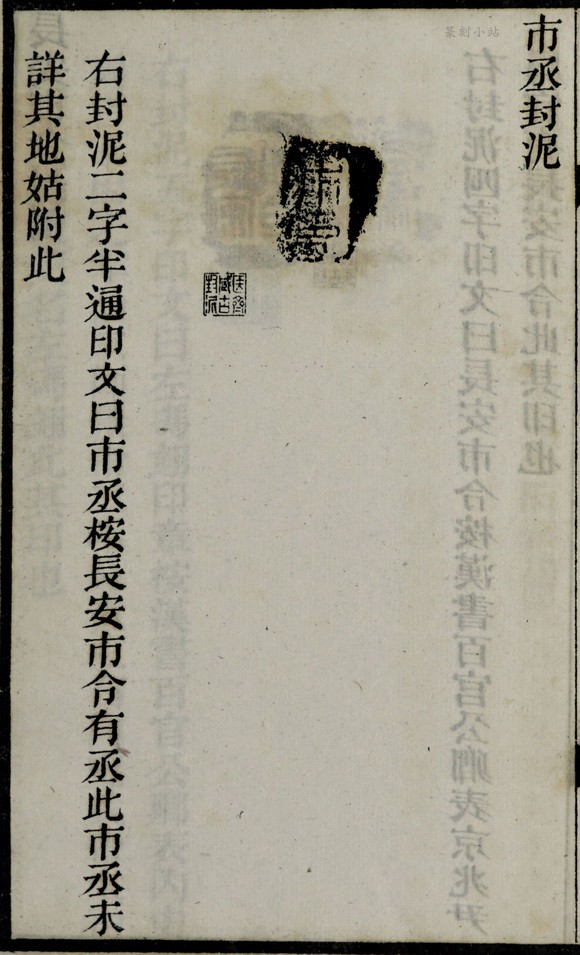 篆刻小站
市丞封泥
右封泥二字半通印文曰市丞桉長安市令有丞此市丞未
詳其地姑附此